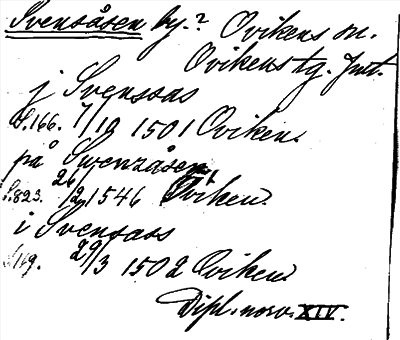 Svensåsen by.? Ovikens sn.
Ovikens tg. Jmt.
j Svenssas
S.166. 7/10 1501 Oviken.
på Swenzåsen
S.823. 26/2 1546 Oviken
i Svensass
29/3 1502 Oviken
Dipl. norv. XIV.